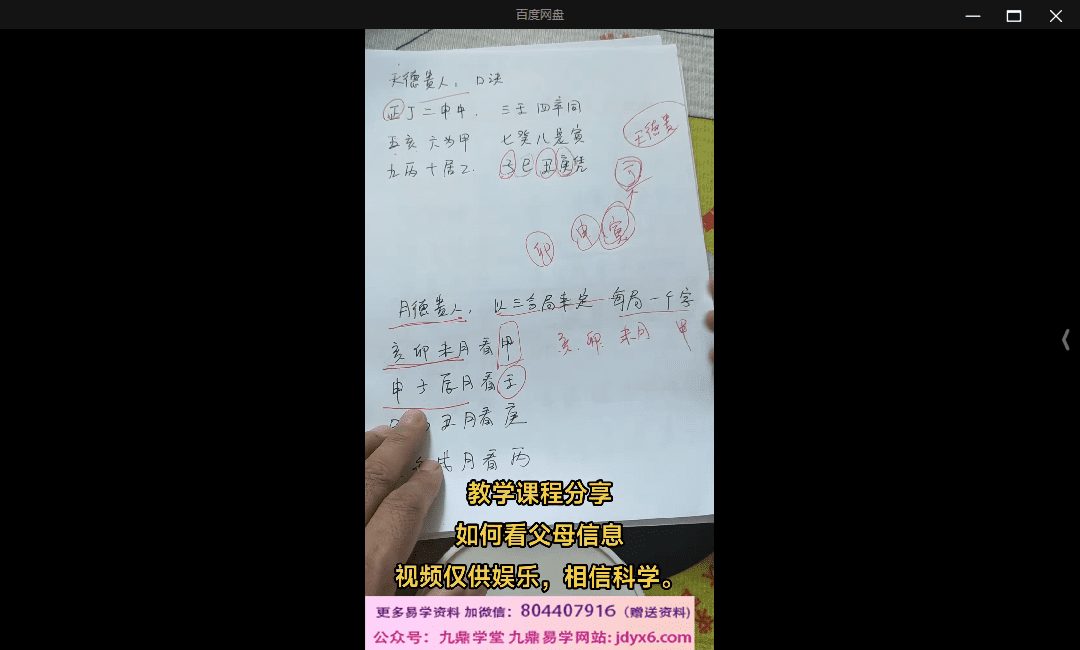 百度网盘
天德贵人，口决
正丁二申中，三壬四辛同
五亥六为甲 七癸八是寅
九丙十居乙 子巳丑庚凭
天德贵
丁
卯 申 寅
月德贵人，以三合局来定 每局一个字
亥卯未月看甲 亥.卯.未月 甲
申子辰月看壬
丑月看庚
戌月看丙
教学课程分享
如何看父母信息
视频仅供娱乐，相信科学。
更多易学资料 加微信：804407916（赠送资料）
公众号：九鼎学堂 九鼎易学网站: jdyx6.com